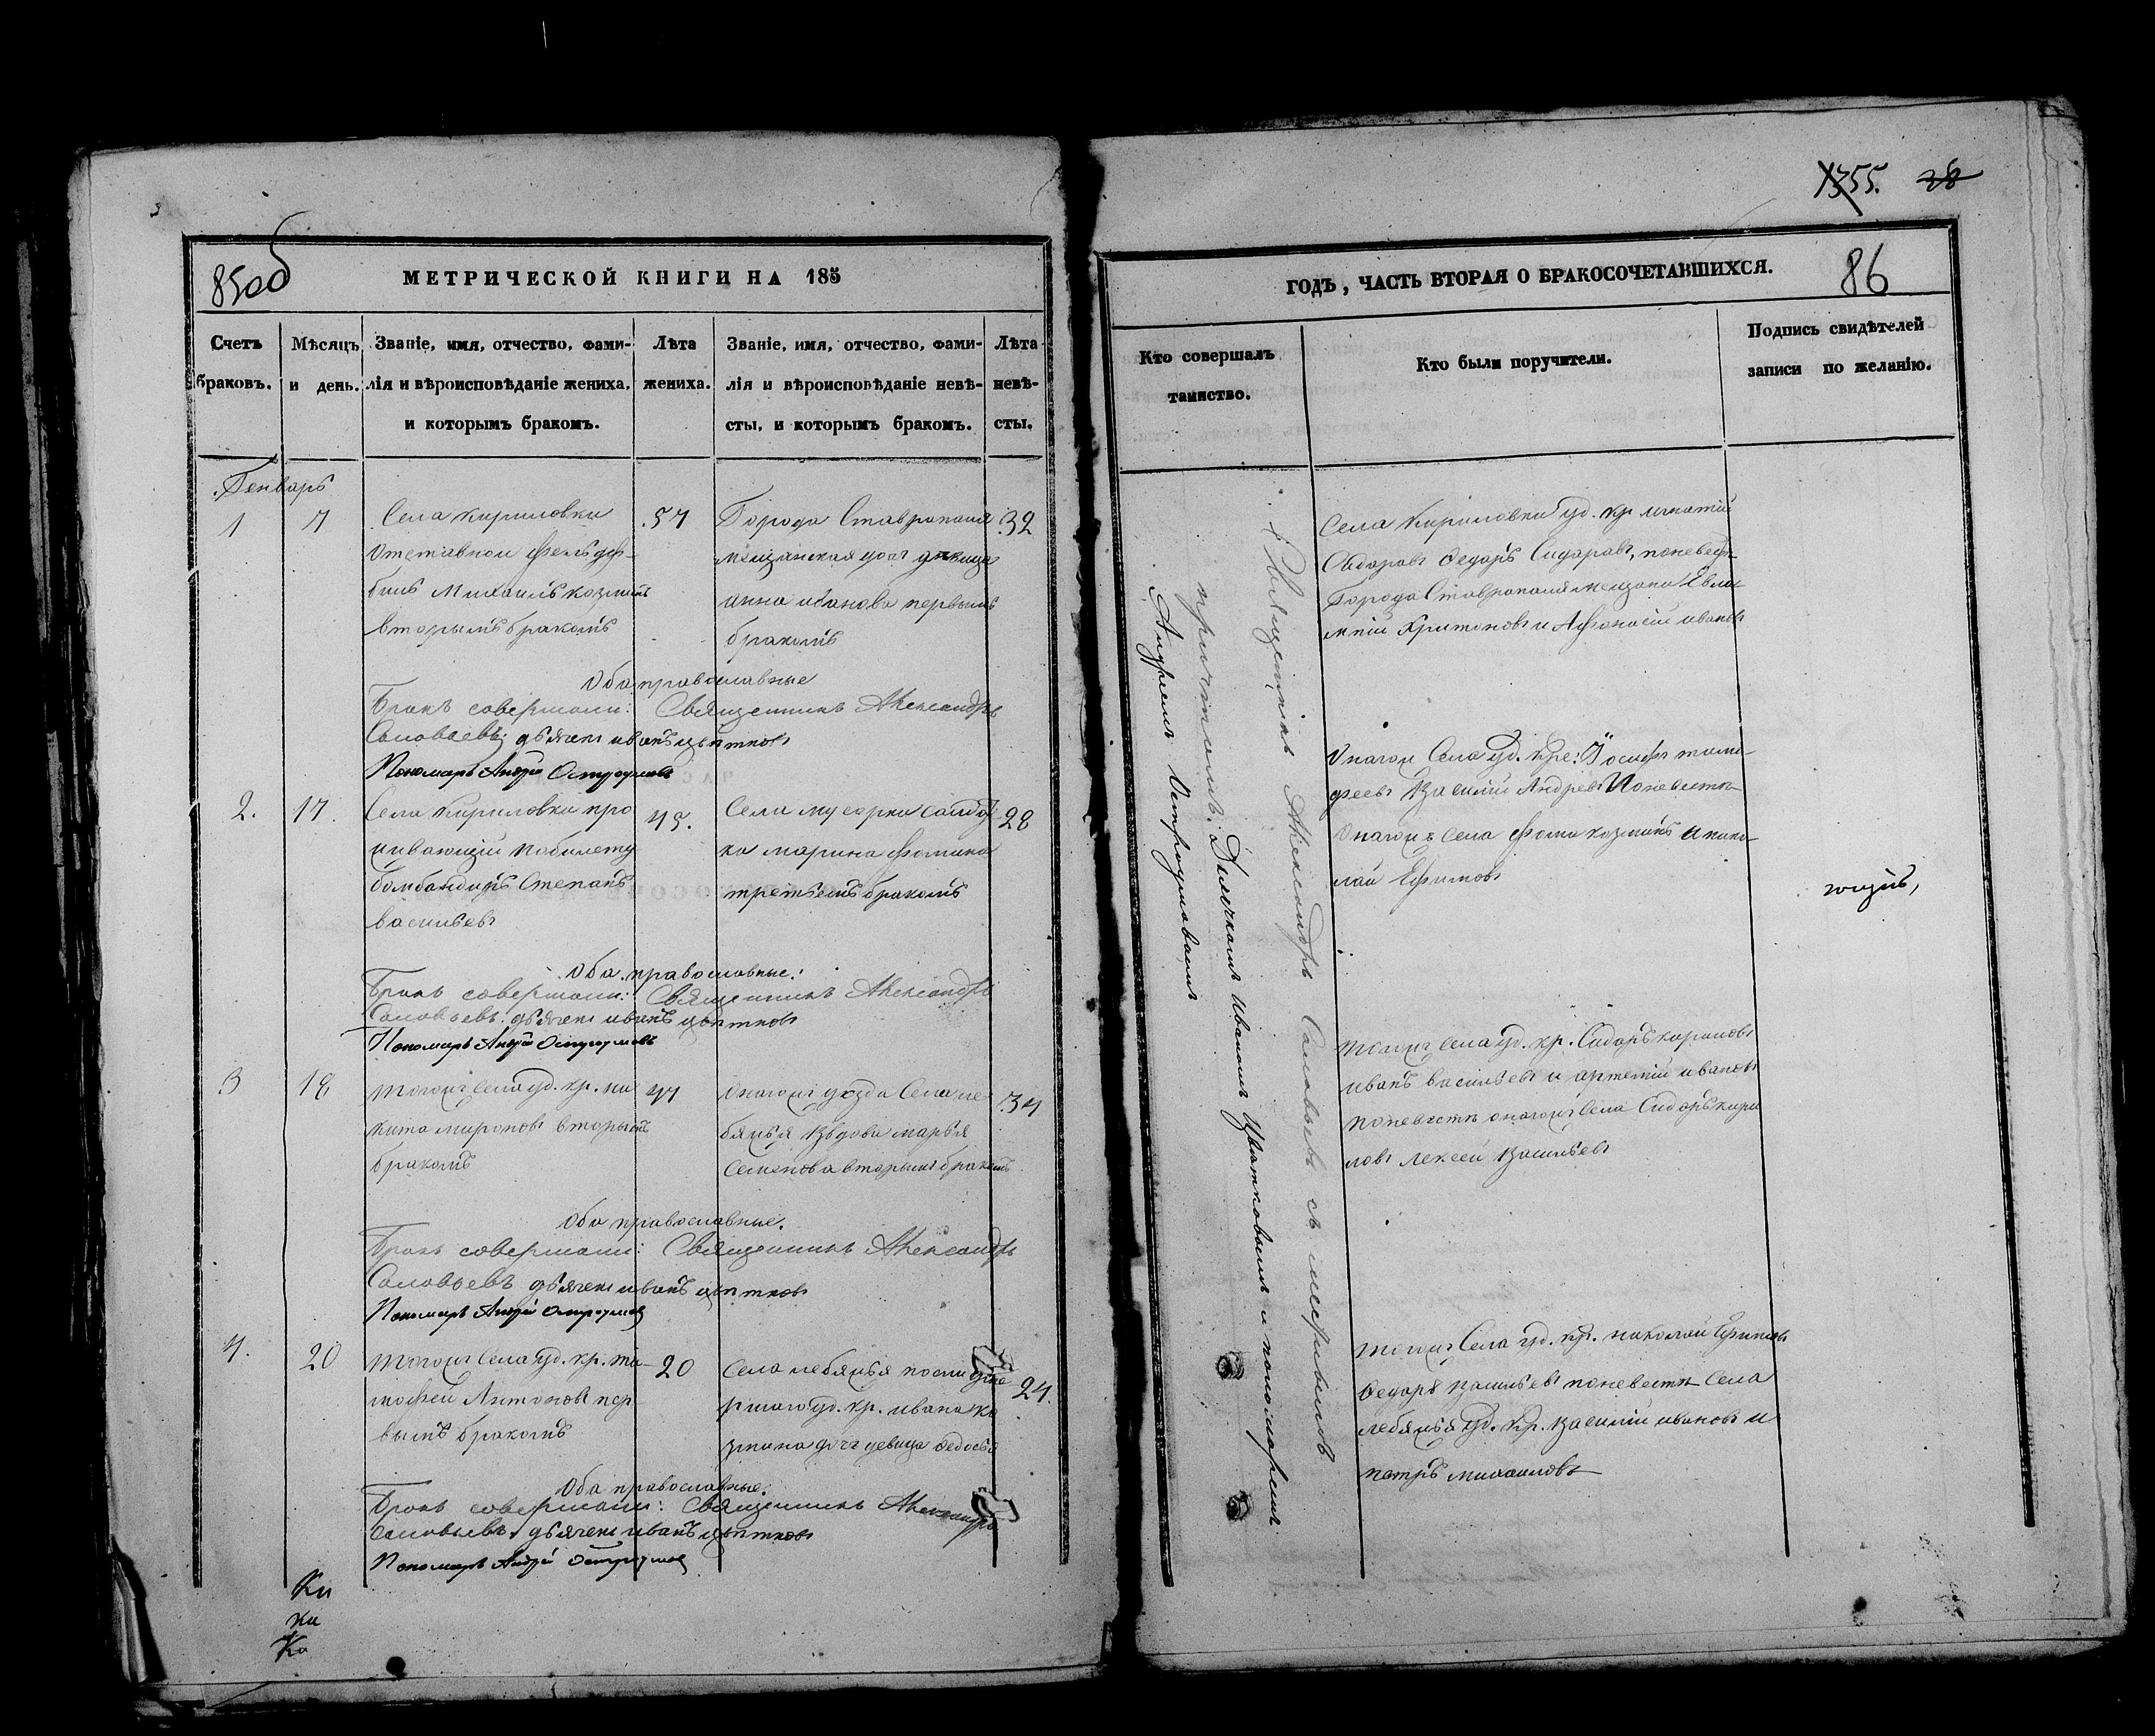 85 об
МЕТРИЧЕСКОЙ КНИГИ НА 185
Счетъ браковъ.
Мѣсяцъ и день.
Званіе, имя, отчество, фами-
лія и вѣроисповѣданіе жениха,
и которымъ бракомъ.
Лѣта
жениха.
Званіе, имя, отчество, фами-
лія и вѣроисповѣданіе невѣ-
сты, и которымъ бракомъ.
Лѣта
невѣ-
сты.
Генварь
1
7
Села Кириловки
отставной
Михаилъ Козминъ
вторымъ бракомъ
57
Города Ставрополя
мещанская доч девица
анна иванова первымъ
бракомъ
32
Оба православные
Бракъ совершали: Священникъ Александръ
Соловьевъ; дьячекъ иванъ цветковъ
Пономарь Андрей Остроумовъ
2.
17.
Села Кириловки про
живающій побилету
бомбандиръ Степанъ
васильевъ
45.
Села мусорки солдат
ка марина фомина
третьемъ бракомъ
28
Оба православные:
Бракъ совершали: Священникъ Александръ
Соловьевъ: дьячекъ иванъ цветковъ
Пономарь Андрей Остроумовъ
3
18
тогож Села уд. кр. ни
кита мироновъ вторымъ
бракомъ
47
оногож уезда Села ле
бяжья вдова марья
Семенова вторымъ бракомъ
34
Оба православные.
Бракъ совершали: Священникъ Александръ
Соловьевъ дьячекъ иванъ цветковъ
Пономарь Андрей Остроумовъ
4.
20
тогож Села уд. кр. ти-
мофей Антоновъ пер
вымъ бракомъ
20
Села лебяжья после уме
ршаго уд. кр. ивана ко
змина доч девица федосья
24.
Оба православные.
Бракъ совершали: Священникъ Александръ
Соловьевъ дьячекъ иванъ цветковъ
Пономарь Андрей Остроумовъ
Ки
ки
Ка
55. 28
ГОДЪ, ЧАСТЬ ВТОРАЯ О БРАКОСОЧЕТАВШИХСЯ.
86
Кто совершалъ
таинство.
Кто были поручители.
Подпись свидѣтелей
записи по желанію.
Священникъ Александръ Соловьевъ съ
причтомъ: Дьячкомъ Иваномъ Цветковымъ и пономаремъ
Андреемъ Остроумовымъ
Села Кириловки уд. кр. игнатій
Сидоровъ Федоръ Сидоровъ, поневесте
Города Ставрополя мещани Евла-
мпій Харитоновъ и Афонасій ивановъ
Оногож Села уд. кре: Іосифъ тимо-
феевъ Василій Андревъ Поневесте
Оногож села Фома козминъ и нико-
лай Ефимовъ
тогож Села уд. кр. Сидоръ кириловъ
иванъ васильевъ и артемій ивановъ
поневесте оногож Села Сидоръ кири
ловъ Алексей Васильевъ
тогож Села уд. кр. николай Ефимовъ
Федоръ Васильевъ поневесте Села
лебяжья уд. кр. василий ивановъ и
петръ михаиловъ